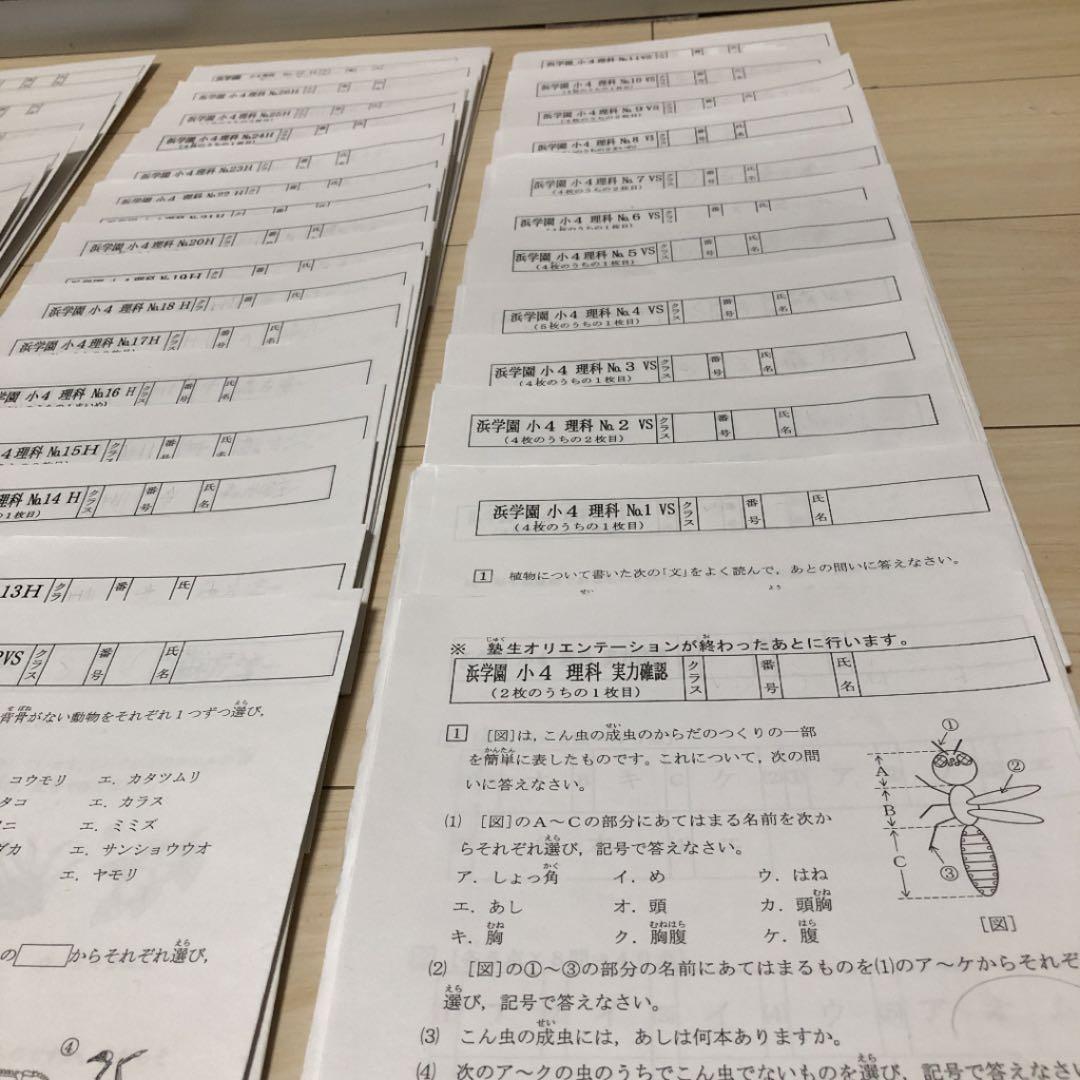 浜学園 小4理科 No.26H
浜学園 小4理科 No.25H
浜学園 小4理科 No.24H
小4理科 No.23H
小4理科 No.22 H
浜学園 小4理科 No.20H
浜学園 小4 理科 No.18 H クラス 番 氏
浜学園 小4理科 No.17H クラス 番号 氏名
学園 小4 理科 No.16 H クラス 番号 氏名
4理科 No.15H クラ 番号 氏名
理科 No.14 H クラス 番号 氏名
の1枚目)
13H クラ 番 氏
VS クラス 番号 氏名
背骨がない動物をそれぞれ1つずつ選び,
コウモリ エ. カタツムリ
タコ エ. カラス
エ. ミミズ
ダカ エ. サンショウウオ
エ. ヤモリ
の からそれぞれ選び,
④
小4 理科 No.11VS
浜学園 小4 理科 No.10 VS
(4枚のうちの1枚目)
浜学園 小4 理科 No.9 VS
(4枚のうちの2枚目)
浜学園 小4 理科 No.8 VS
浜学園 小4 理科 No.7 VS クラス 番号 氏名
(4枚のうちの2枚目)
浜学園 小4 理科 No.6 VS クラス 番 氏
(4枚のうちの1枚目)
浜学園 小4 理科 No.5 VS クラス 番号 氏名
(4枚のうちの1枚目)
浜学園 小4 理科 No.4 VS クラス 番号 氏名
(5枚のうちの1枚目)
浜学園 小4 理科 No.3 VS クラス 番号 氏名
(4枚のうちの1枚目)
浜学園 小4 理科 No.2 VS クラス 番号 氏名
(4枚のうちの2枚目)
浜学園 小4 理科 No.1 VS クラス 番号 氏名
(4枚のうちの1枚目)
1 植物について書いた次の「文」をよく読んで,あとの問いに答えなさい。
※ 塾生オリエンテーションが終わったあとに行います。
浜学園 小4 理科 実力確認 クラス 番号 氏名
(2枚のうちの1枚目)
1 [図]は,こん虫の成虫のからだのつくりの一部
を簡単に表したものです。これについて,次の問
いに答えなさい。
(1) [図]のA〜Cの部分にあてはまる名前を次か
らそれぞれ選び,記号で答えなさい。
ア. しょっ角 イ. め ウ. はね
エ. あし オ. 頭 カ. 頭胸
キ. 胸 ク. 胸腹 ケ. 腹
① ② ③ A B C
[図]
(2) [図]の①〜③の部分の名前にあてはまるものを(1)のア〜ケからそれぞ
選び,記号で答えなさい。
(3) こん虫の成虫には,あしは何本ありますか。
(4) 次のア〜クの虫のうちでこん虫でないものを選び,記号で答えなさい